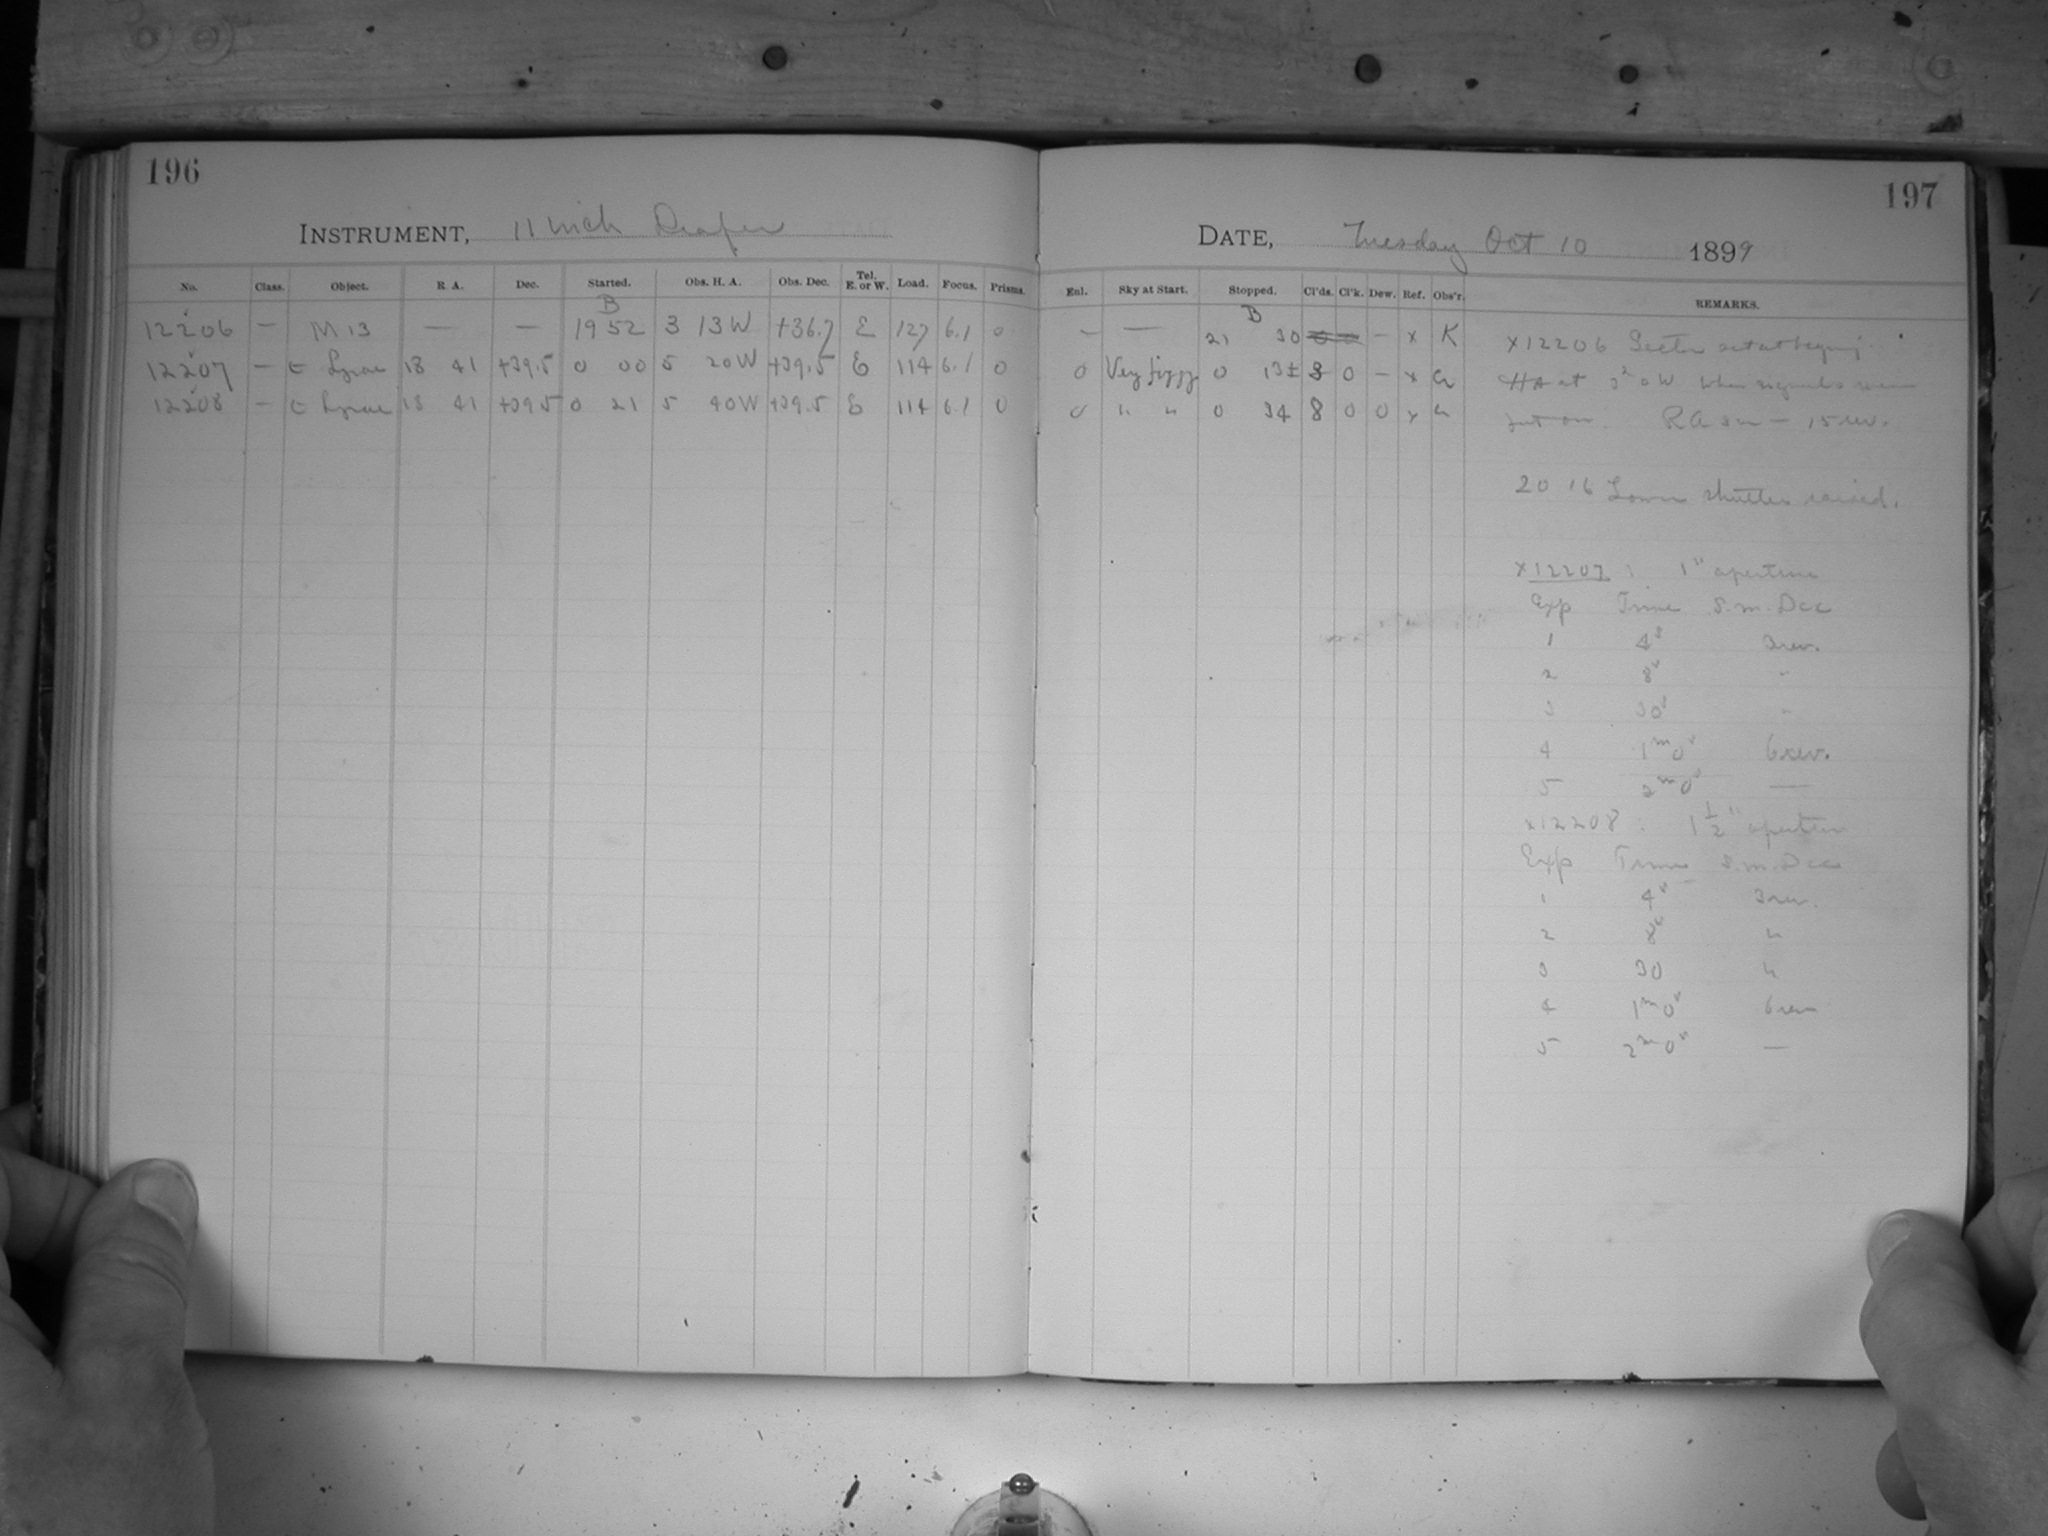 196
INSTRUMENT, 11 inch Draper
No. Class. Object. R. A. Dec. Started. Obs. H. A. Obs. Dec. Tel. E. or W. Load. Focus. Prisms.
B
12206 — M 13 — — 19 52 3 13 W +36.7 E 127 6.1 0
12207 — ε Lyrae 18 41 +39.5 0 00 5 20 W +39.5 E 114 6.1 0
12208 — ε Lyrae 18 41 +39.5 0 21 5 40 W +39.5 E 114 6.1 0
197
DATE, Tuesday Oct 10 1899
Enl. Sky at Start. Stopped. Cl'ds. Cl'k. Dew. Ref. Obs'r. REMARKS.
B
— — 21 30 — x K
0 Very 0 13± 8 0 — x
0 " " 0 34 8 0 0 x
x12206 Sector set at
HA at W when were
put on. R A sm — 15 rev.
20 16 Lower shutter raised.
x12207 : 1" aperture
Exp Time S.m. Dec
1 4s 3 rev.
2 8s "
3 30s "
4 1m 0s 6 rev.
5 2m 0s —
x12208 : 1 1/2" aperture
Exp Time S.m. Dec
1 4s 3 rev.
2 8s "
3 30 "
4 1m 0s 6 rev
5 2m 0s —